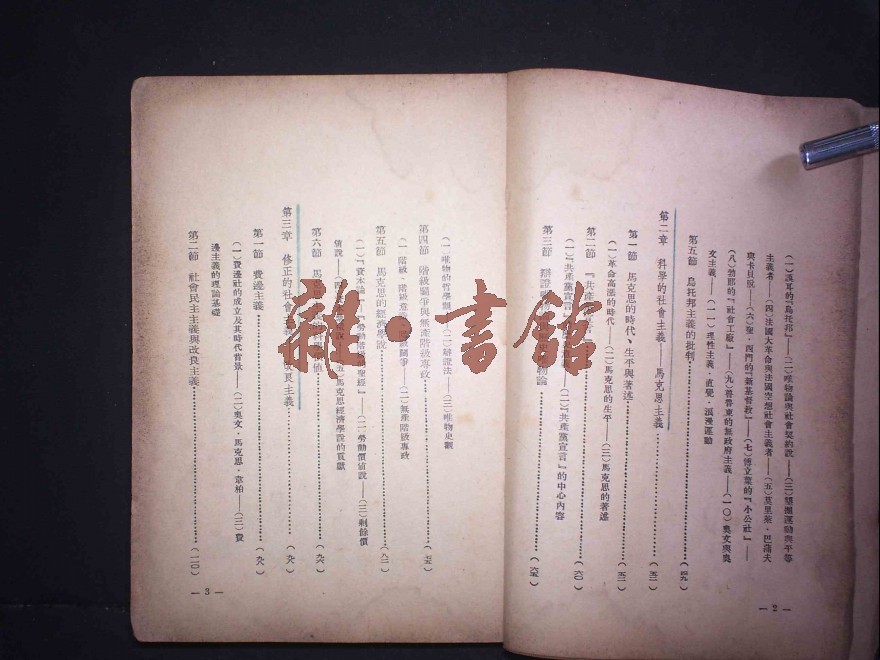 (一)謨耳的『烏托邦』——(二)唯物論與社會契約說——(三)掘濬運動與平等
主義者——(四)法國大革命與法國空想社會主義者——(五)莫里萊・巴蒲夫
與卡貝脫——(六)聖・西門的『新基督教』——(七)傅立葉的『小公社』——
(八)勃郎的『社會工廠』——(九)普魯東的無政府主義——(一〇)奧文與奧
文主義——(一一)理性主義・直覺・浪漫運動
第五節 烏托邦主義的批判(四九)
第二章 科學的社會主義——馬克思主義(五二)
第一節 馬克思的時代、生平與著述(五二)
(一)革命高漲的時代——(二)馬克思的生平——(三)馬克思的著述
第二節 『共產黨(六〇)
(一)『共產黨宣言』——(二)『共產黨宣言』的中心內容
第三節 辯證 物論(六五)
— 2 —
(一)唯物的哲學 (二)辯證法——(三)唯物史觀
第四節 階級鬭爭與無產階級專政(七五)
(一)階級、階級意 級鬭爭——(二)無產階級專政
第五節 馬克思的經濟學說(八二)
(一)『資本 『勞 聖經』——(二)勞動價值說——(三)剩餘價
值說——(四 (五)馬克思經濟學說的貢獻
第六節 馬克思 價值(九六)
第三章 修正的社會主義 改良主義(九八)
第一節 費邊主義(九八)
(一)費邊社的成立及其時代背景——(二)奧文・馬克思・韋柏——(三)費
邊主義的理論基礎
第二節 社會民主主義與改良主義(一一〇)
— 3 —
雜・書館